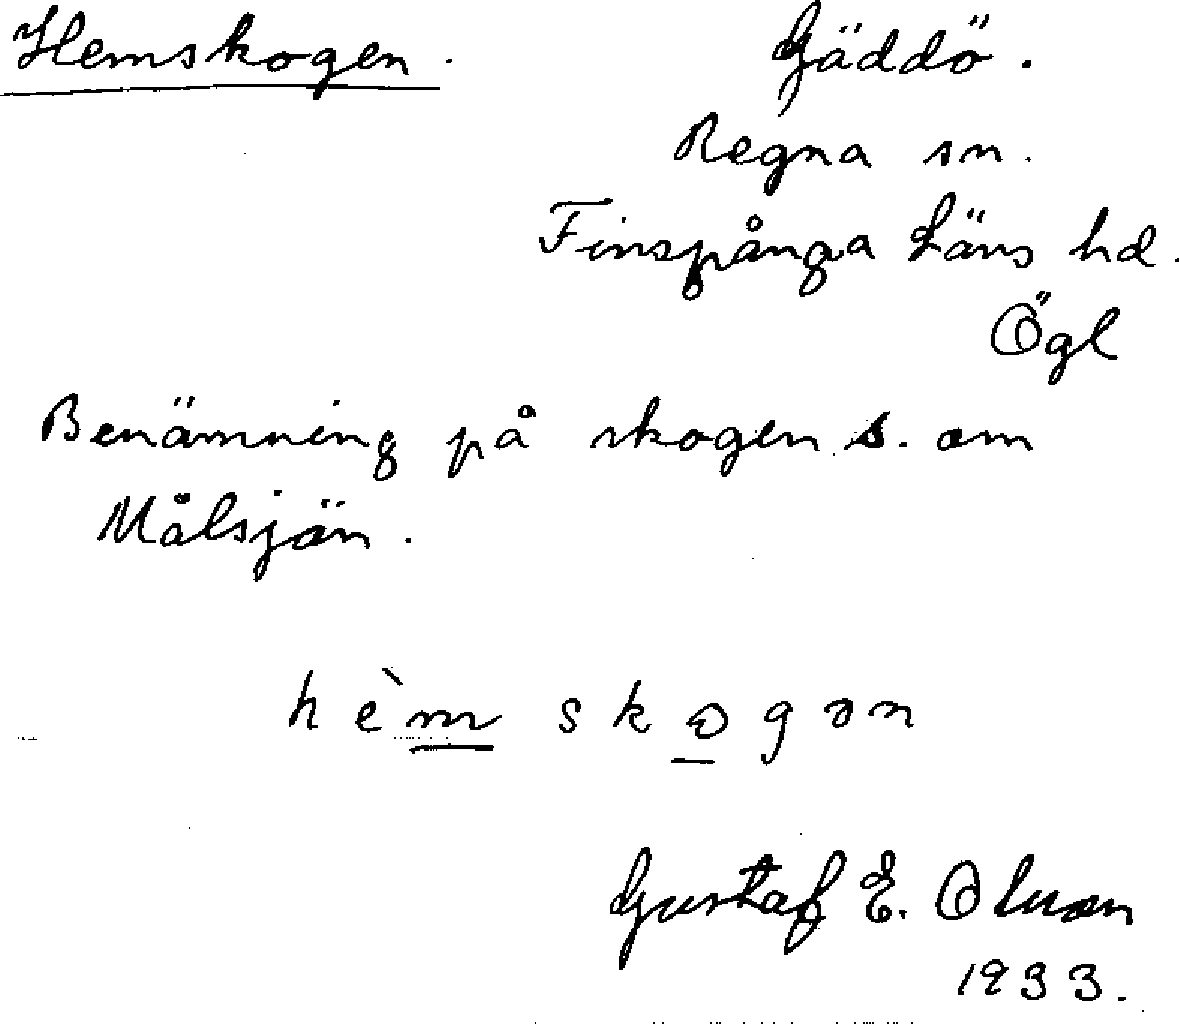 Hemskogen.
Gäddö.
Regna sn.
Finspånga Läns hd.
Ögl
Benämning på skogen s. om
Målsjön.
hèm skogən
Gustaf E. Olsson
1933.